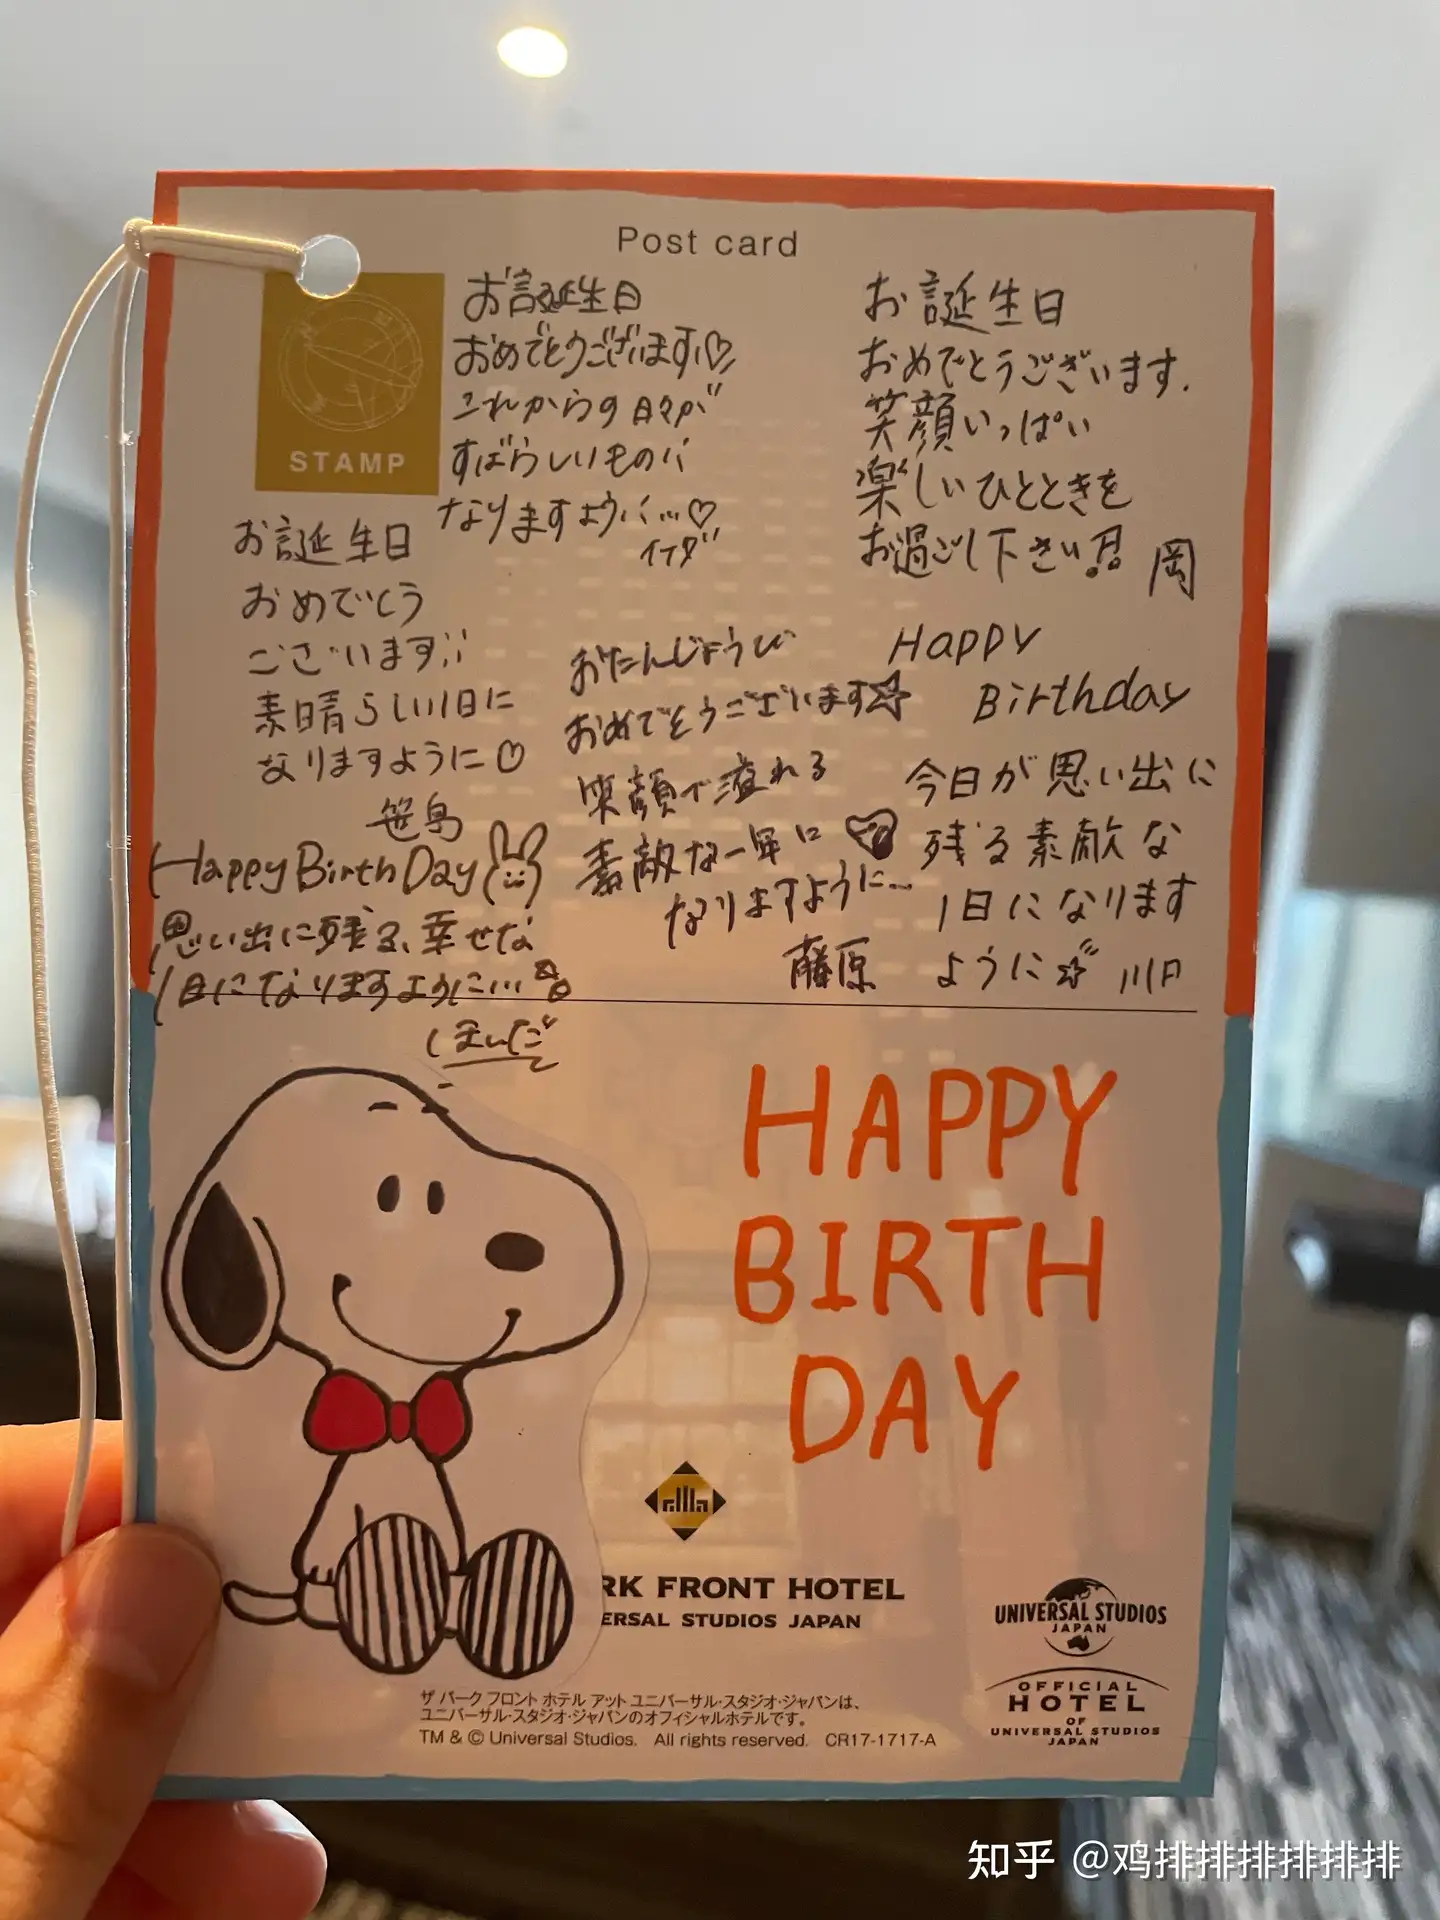 Post card
STAMP
お誕生日
おめでとうございます♡
これからの日々が
すばらしいものに
なりますように…♡
イケダ
お誕生日
おめでとうございます.
笑顔いっぱい
楽しいひとときを
お過ごし下さい!!
岡
お誕生日
おめでとう
ございます!!
素晴らしい1日に
なりますように♡
笹島
おたんじょうび
おめでとうございます☆
笑顔で溢れる
素敵な一年に
なりますように…
藤原
Happy
Birthday
今日が思い出に
残る素敵な
1日になります
ように☆
Happy Birth Day
思い出に残る、幸せな
1日になりますように…
HAPPY
BIRTH
DAY
RK FRONT HOTEL
ERSAL STUDIOS JAPAN
UNIVERSAL STUDIOS
JAPAN
OFFICIAL
HOTEL
OF
UNIVERSAL STUDIOS
JAPAN
ザ パーク フロント ホテル アット ユニバーサル・スタジオ・ジャパンは、
ユニバーサル・スタジオ・ジャパンのオフィシャルホテルです。
TM & © Universal Studios. All rights reserved. CR17-1717-A
知乎 @鸡排排排排排排